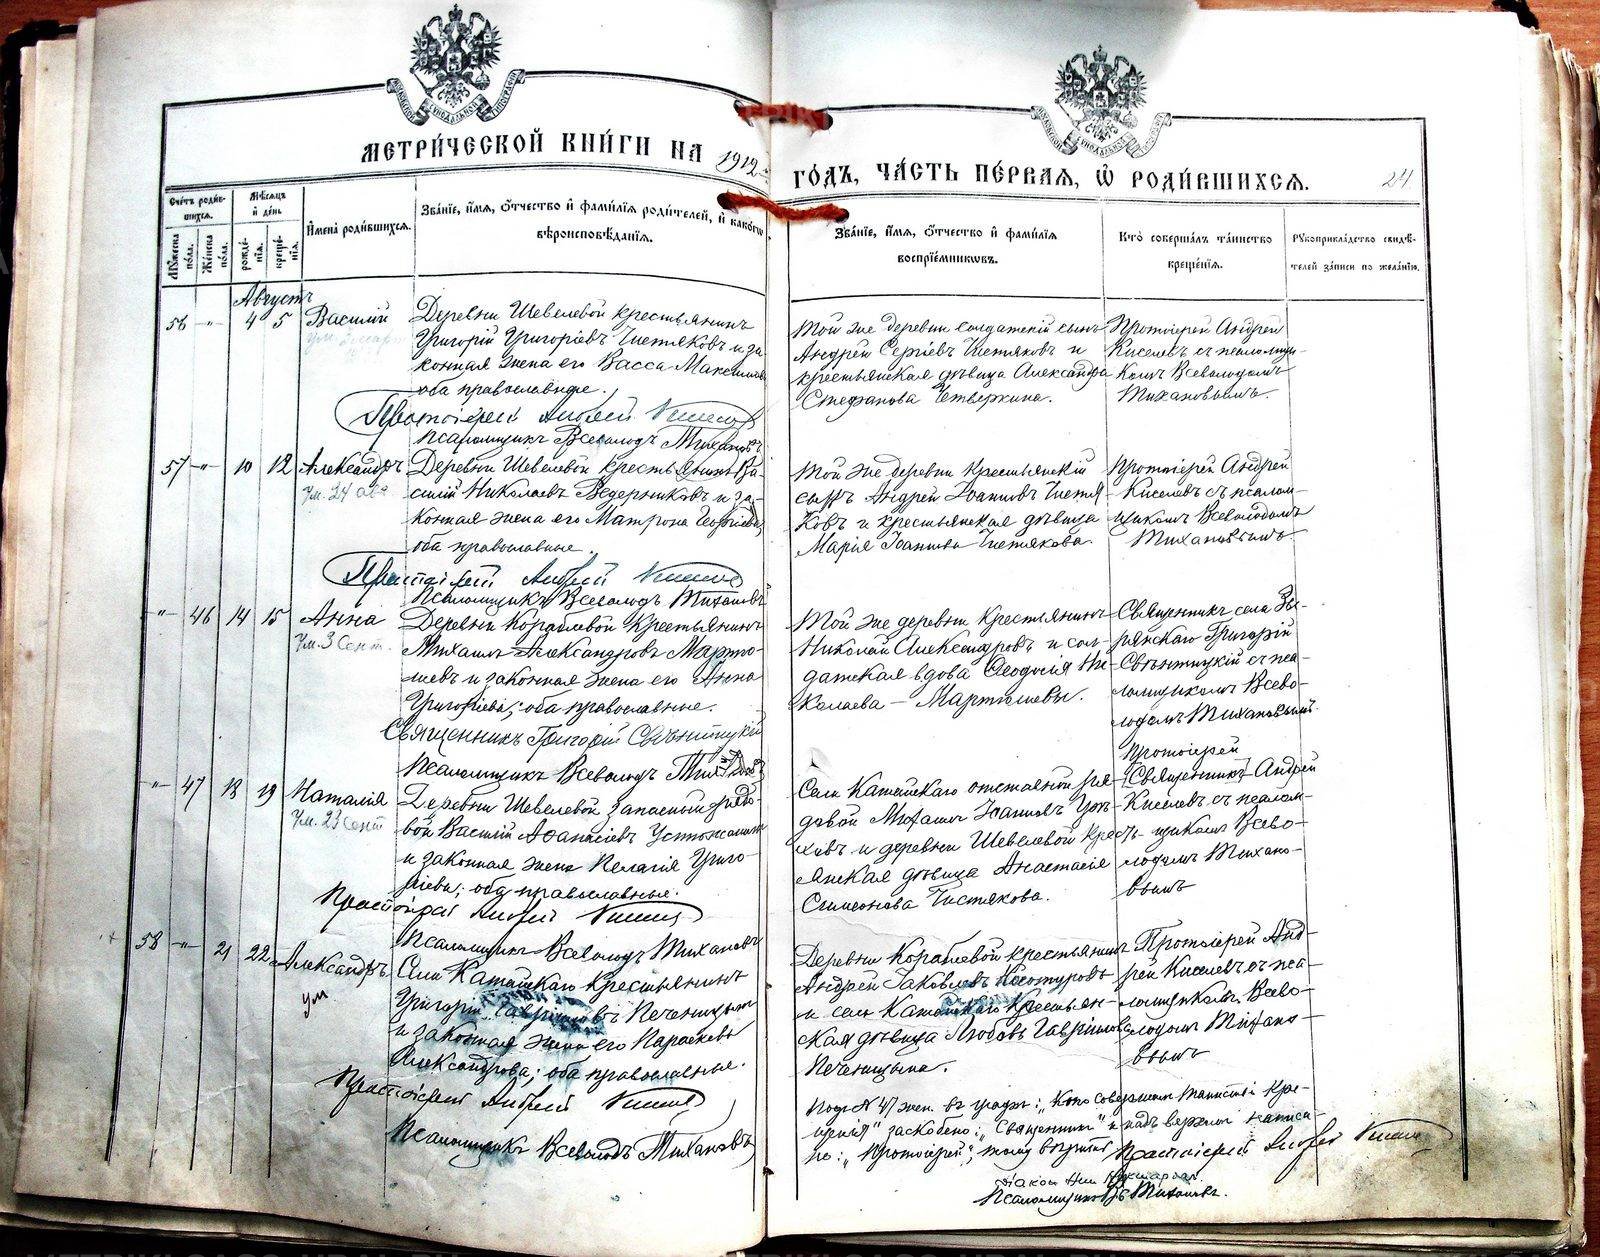 МЕТРИ́ЧЕСКОЙ КНИ́ГИ НА 1912
ГО́ДЪ, ЧА́СТЬ ПЕ́РВАЯ, Ѽ РОДИ́ВШИХСЯ.
24
Сче́тъ роди́в-
шихся.
Мѣ́сяцъ
и҆ де́нь
Му́жеска
по́ла.
Же́нска
по́ла.
рожде́-
нїя.
креще́-
нїя.
И҆мена̀ роди́вшихся.
Зва́нїе, и҆́мя, ѻ҆́тчество и҆ фами́лїя роди́телей, и҆ како́гѡ
вѣроисповѣ́данїя.
Зва́нїе, и҆́мя, ѻ҆́тчество и҆ фами́лїя
воспрїе́мникωвъ.
Кто̀ соверша́лъ та́инство
креще́нїя.
Рукоприкла́дство свидѣ́-
телей за́писи по жела́нїю.
Августъ
56 -"- 4 5 Василій
Деревни Шевелевой крестьянинъ
Григорій Григоріевъ Чистяковъ и за-
конная жена его Васса
оба православные.
Протоіерей Андрей Киселевъ
Псаломщикъ Всеволодъ Тихановъ
Той же деревни солдатскій сынъ
Андрей Сергіевъ Чистяковъ и
крестьянская дѣвица Александра
Стефанова Четверкина.
Протоіерей Андрей
Киселевъ съ псаломщи-
комъ Всеволодомъ
Тихановымъ.
57 -"- 10 12 Александръ
Ум. 24 авг.
Деревни Шевелевой крестьянинъ Ва-
силій Николаевъ Ведерниковъ и за-
конная жена его Матрона Георгіева,
оба православные.
Протоіерей Андрей Киселевъ
Псаломщикъ Всеволодъ Тихановъ
Той же деревни крестьянскій
сынъ Андрей Іоанновъ Чистя-
ковъ и крестьянская дѣвица
Марія Іоаннова Чистякова.
Протоіерей Андрей
Киселевъ съ псалом-
щикомъ Всеволодомъ
Тихановымъ.
-"- 46 14 15 Анна
Ум. 3 Сент.
Деревни Кораблевой Крестьянинъ
Михаилъ Александровъ Мартю-
шевъ и законная жена его Анна
Григоріева; оба православные.
Священникъ Григорій Свѣнтицкій
Псаломщикъ Всеволодъ Тихановъ
Той же деревни Крестьянинъ
Николай Александровъ и сол-
датская вдова Ѳеодосія Ни-
колаева — Мартюшевы.
Священникъ села Зы-
рянскаго Григорій
Свѣнтицкій съ пса-
ломщикомъ Всево-
лодомъ Тихановымъ.
-"- 47 18 19 Наталія
Ум. 23 Сент
Деревни Шевелевой запасный рядо-
вой Василій Аѳанасіевъ
и законная жена Пелагія Григо-
ріева; оба православные.
Протоіерей Андрей Киселевъ
Псаломщикъ Всеволодъ Тихановъ
Села Катайскаго отставной ря-
довой Михаилъ Іоанновъ
и деревни Шевелевой крестъ-
янская дѣвица Анастасія
Симеонова Чистякова.
Протоіерей
[Священникъ] Андрей
Киселевъ съ псалом-
щикомъ Всево-
лодомъ Тихано-
вымъ
58 -"- 21 22 Александръ
ум
Села Катайскаго Крестьянинъ
Григорій Гавріиловъ Печеницынъ
и законная жена его Параскева
Александрова; оба православные.
Протоіерей Андрей Киселевъ
Псаломщикъ Всеволодъ Тихановъ
Деревни Кораблевой крестьянинъ
Андрей Іаковлевъ
и села Катайскаго Крестьян-
ская дѣвица Любовь Гавріилова
Печеницына.
Протоіерей Анд-
рей Киселевъ съ пса-
ломщикомъ Всево-
лодомъ Тихано-
вымъ
Подъ № 47 жен. въ графѣ: „Кто совершалъ таинство кре-
щенія" заскоблено: „Священникъ" и надъ верхомъ написа-
но: „Протоіерей", тому вѣрить. Протоіерей Андрей Киселевъ
Діаконъ
Псаломщикъ В. Тихановъ.